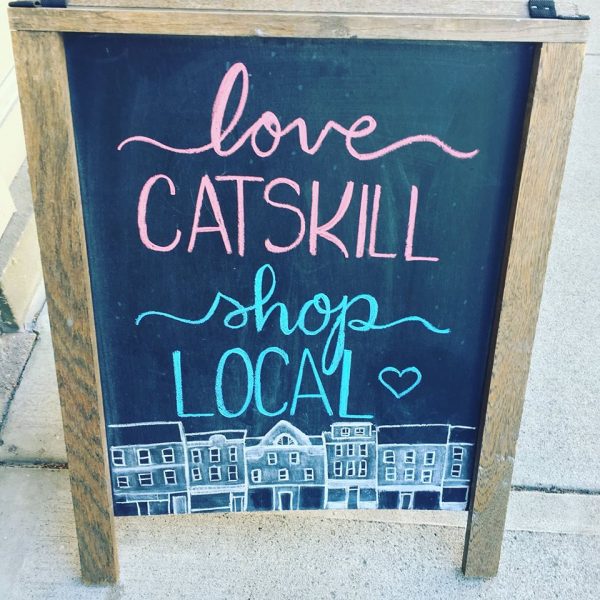 love
CATSKILL
shop
LOCAL